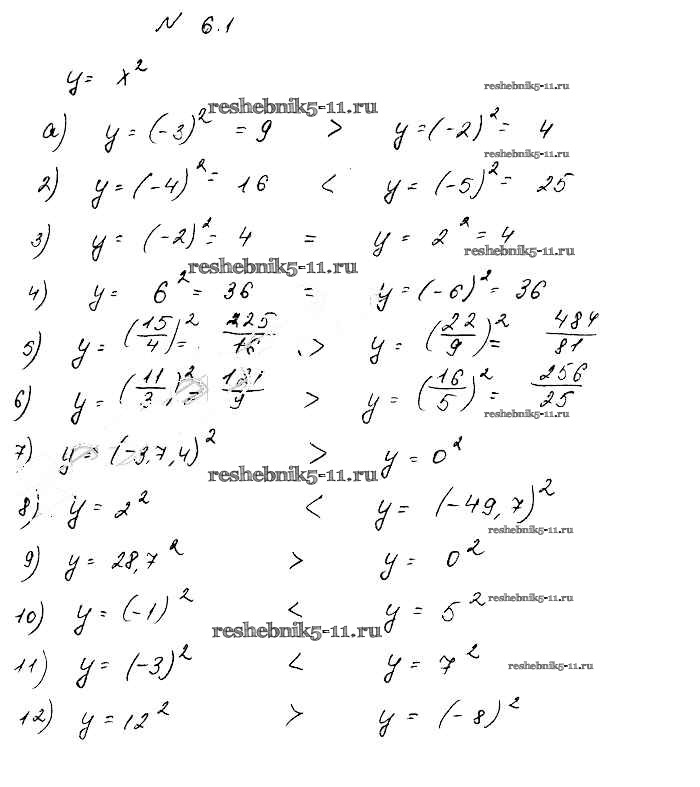 N 6.1
y = x²
reshebnik5-11.ru
reshebnik5-11.ru
a) y = (-3)² = 9 > y = (-2)² = 4
reshebnik5-11.ru
2) y = (-4)² = 16 < y = (-5)² = 25
3) y = (-2)² = 4 = y = 2² = 4
reshebnik5-11.ru
reshebnik5-11.ru
4) y = 6² = 36 = y = (-6)² = 36
5) y = (15/4)² = 225/16 > y = (22/9)² = 484/81
6) y = (11/3)² = 121/9 > y = (16/5)² = 256/25
reshebnik5-11.ru
7) y = (-3,7,4)² > y = 0²
reshebnik5-11.ru
8) y = 2² < y = (-49,7)²
reshebnik5-11.ru
9) y = 28,7² > y = 0²
10) y = (-1)² < y = 5²
reshebnik5-11.ru
reshebnik5-11.ru
11) y = (-3)² < y = 7²
reshebnik5-11.ru
12) y = 12² > y = (-8)²